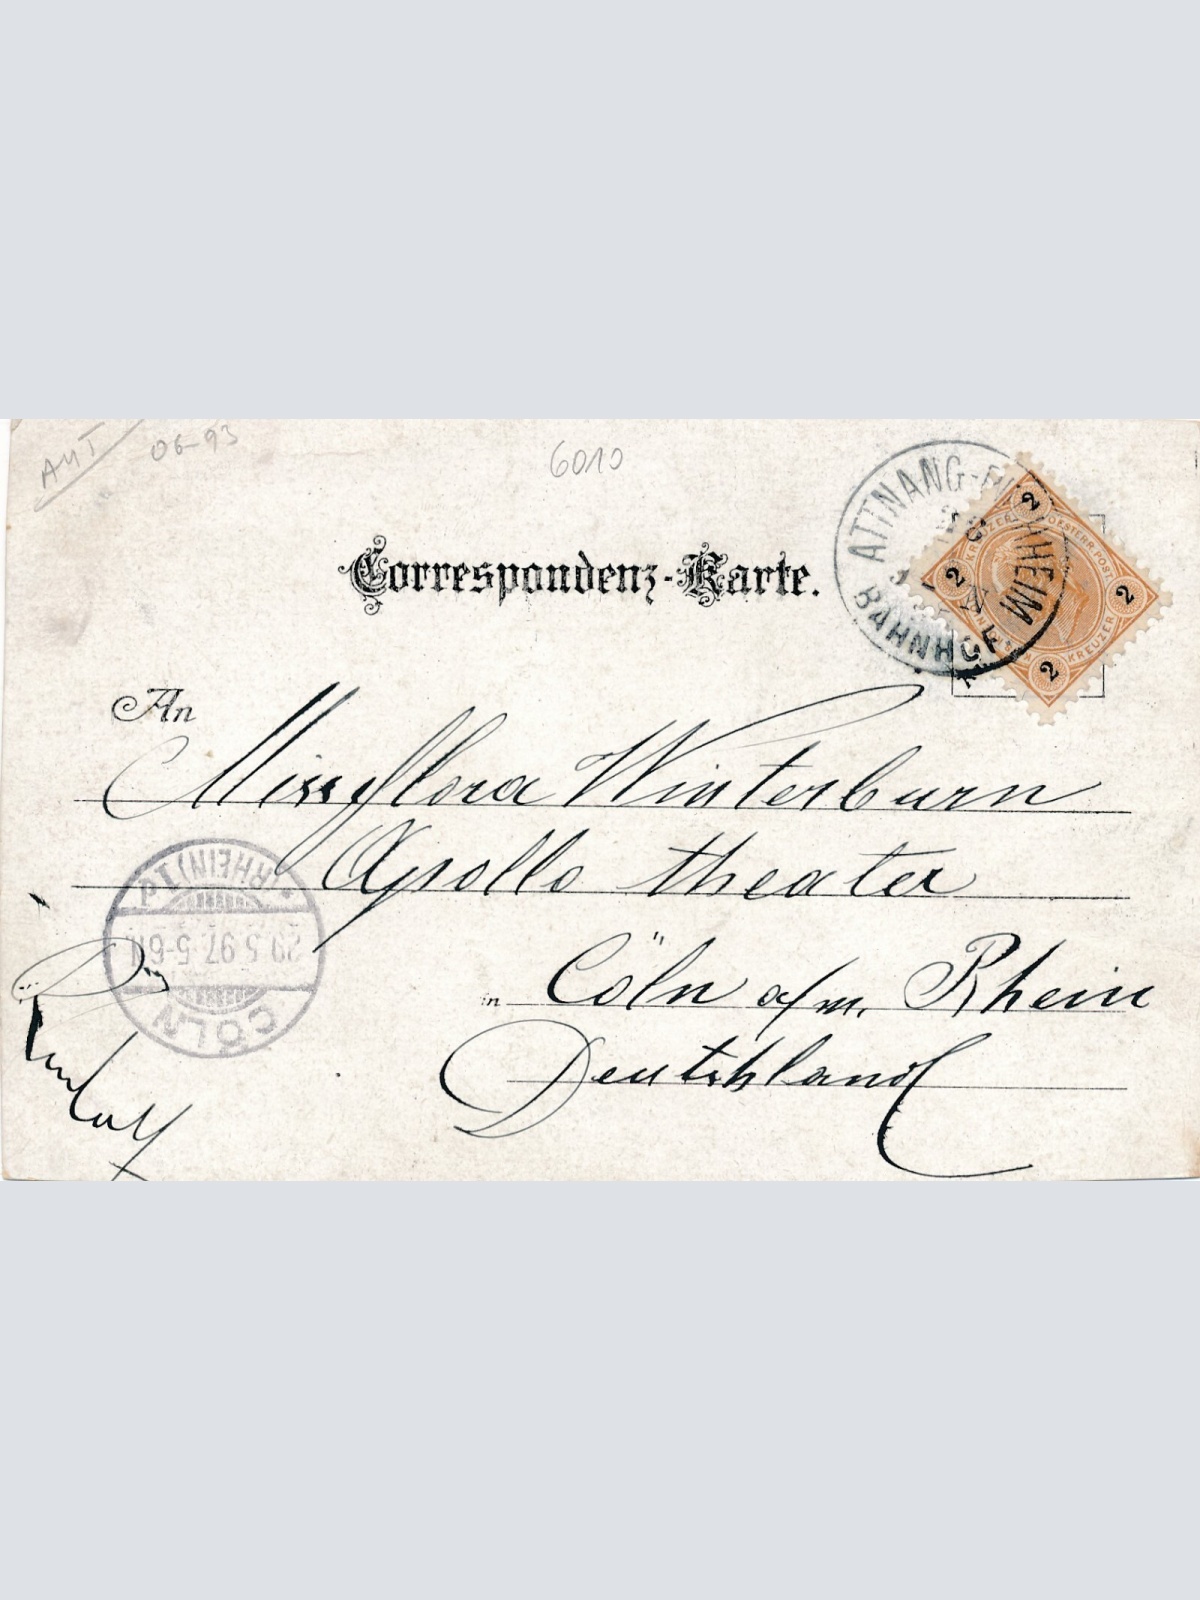 AUT
06-93
6010
Correspondenz-Karte.
ATTNANG-P HEIM
BAHNHOF
2 2 2 2
KREUZER
OESTERR. POST
KREUZER
An
Miss Flora Winterburn
Apollo theater
in Cöln a/m. Rhein
Deutshland
CÖLN
29.5.97. 5-6N
*(RHEIN)1d
Rudolf